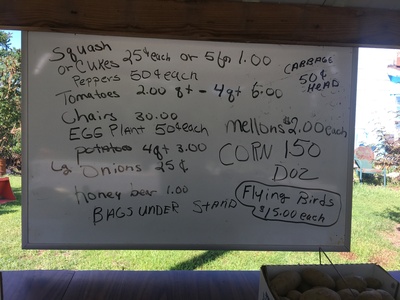 Squash
or Cukes 25¢ each or 5 for 1.00
Peppers 50¢ each
Tomatoes 2.00 qt - 4qt 6.00
Chairs 30.00
EGG PLANT 50¢ each
potatoes 4qt 3.00
Lg Onions 25¢
honey bear 1.00
BAGS UNDER STAND
CABBAGE
50¢
HEAD
mellons $2.00 each
CORN 150
Doz
Flying Birds
$15.00 each